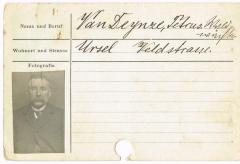 Name und Beruf:
Van Deynze, Petrus,
Wohnort und Strasse
Ursel Veldstrasse.
Fotografie